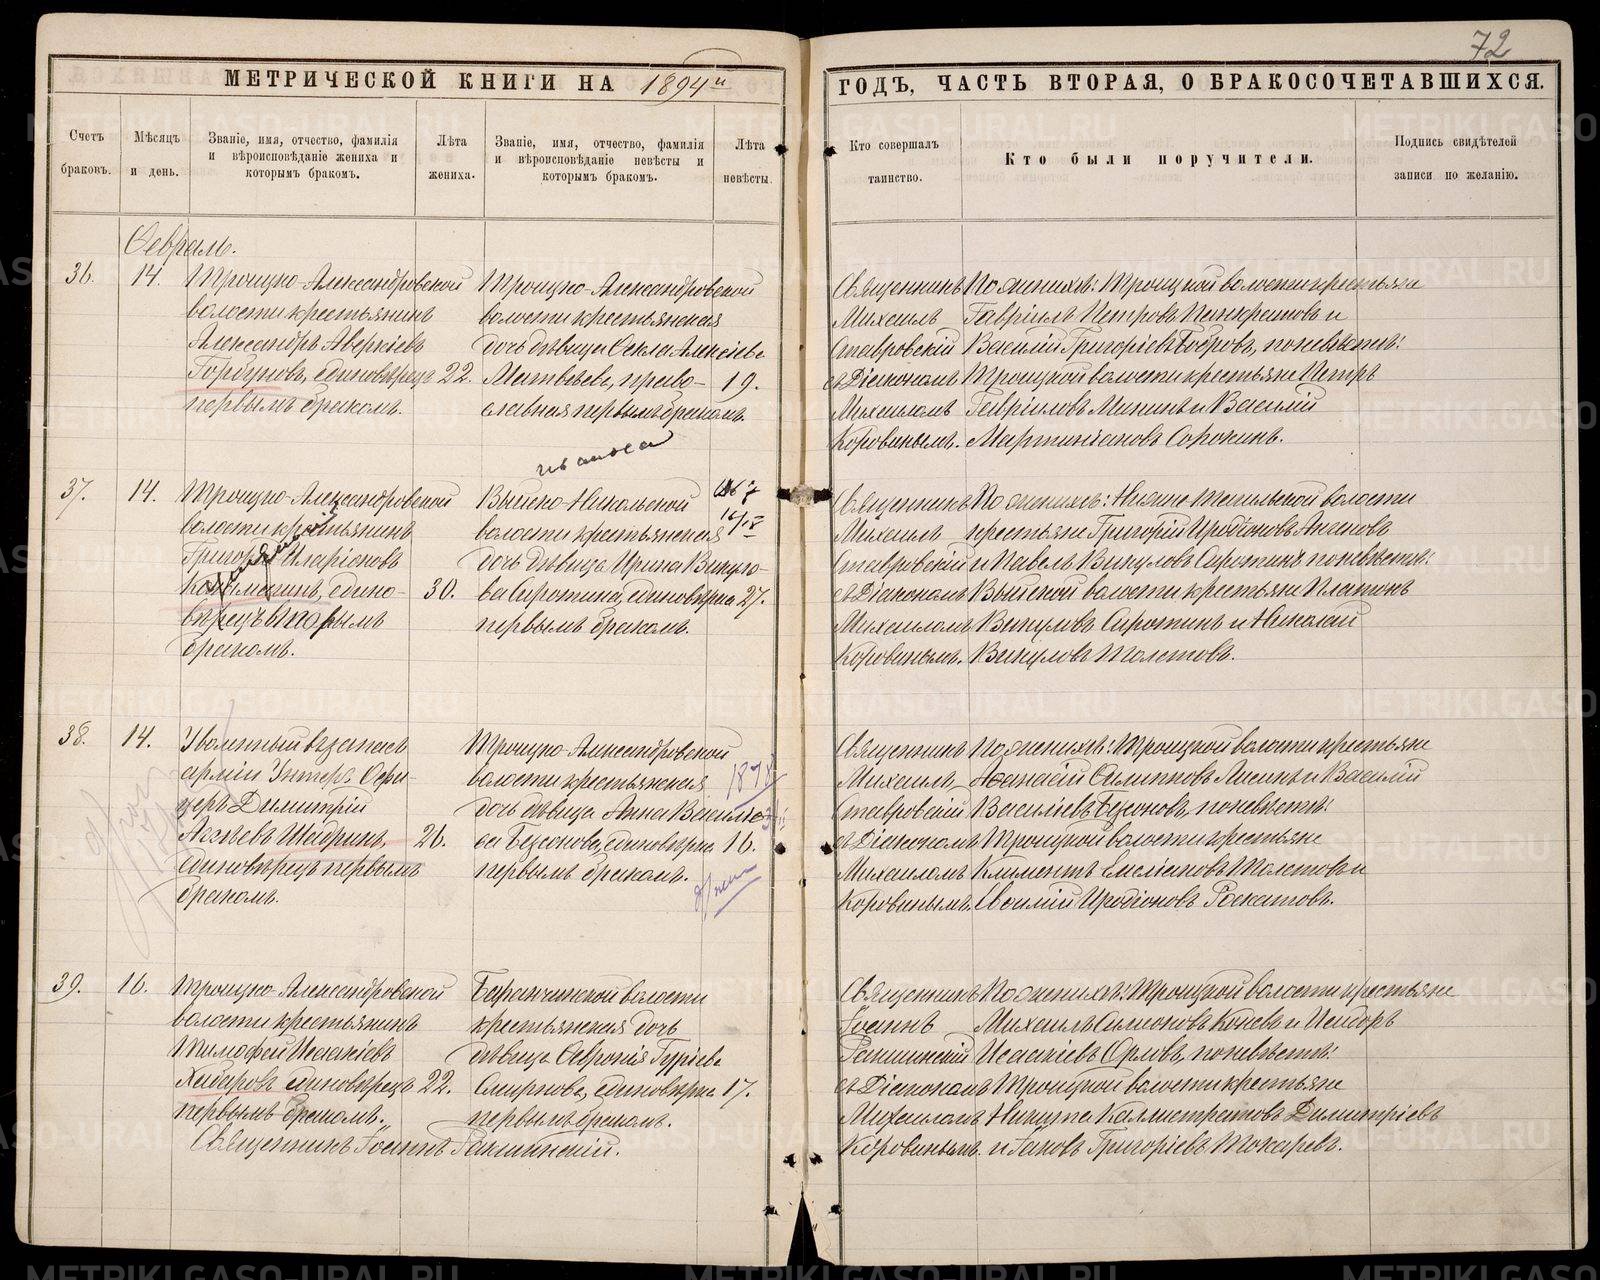 72
МЕТРИЧЕСКОЙ КНИГИ НА 1894й
ГОДЪ, ЧАСТЬ ВТОРАЯ, О БРАКОСОЧЕТАВШИХСЯ.
Счетъ браковъ.
Мѣсяцъ и день.
Званіе, имя, отчество, фамилія
и вѣроисповѣданіе жениха и
которымъ бракомъ.
Лѣта жениха.
Званіе, имя, отчество, фамилія
и вѣроисповѣданіе невѣсты и
которымъ бракомъ.
Лѣта невѣсты.
Кто совершалъ таинство.
Кто были поручители.
Подпись свидѣтелей
записи по желанію.
Февраль.
36.
14.
Троицко-Александровской
волости крестьянинъ
Александръ Аверкіевъ
Горбуновъ, единовѣрецъ
первымъ бракомъ.
22.
Троицко-Александровской
волости крестьянская
дочь дѣвица Фекла Алексіева
Матвѣева, право-
славная первымъ бракомъ.
19.
Священникъ
Михаилъ
Ставровскій
съ Діакономъ
Михаиломъ
Коровинымъ.
По женихѣ: Троицкой волости крестьяне
Гавріилъ Петровъ Панкратовъ и
Василій Григоріевъ Бобровъ, по невѣстѣ:
Троицкой волости крестьяне Петръ
Гавріиловъ Мининъ и Василій
Мартиніановъ Сорокинъ.
37.
14.
Троицко-Александровской
волости крестьянинъ
Григорій Иларіоновъ
едино-
вѣрецъ вторымъ
бракомъ.
30.
Выйско-Никольской
волости крестьянская
дочь дѣвица Ирина Викуло-
ва Сиротина, единовѣрка
первымъ бракомъ.
27.
Священникъ
Михаилъ
Ставровскій
съ Діакономъ
Михаиломъ
Коровинымъ.
По женихѣ: Нижне-Тагильской волости
крестьяне Григорій Иродіоновъ Аксеновъ
и Павелъ Викуловъ Сиротинъ по невѣстѣ:
Выйской волости крестьяне Платонъ
Викуловъ Сиротинъ и Николай
Викуловъ Толстовъ.
38.
14.
Уволенный въ запасъ
арміи Унтеръ Офи-
церъ Димитрій
Агѣевъ Шадринъ,
единовѣрецъ первымъ
бракомъ.
26.
Троицко-Александровской
волости крестьянская
дочь дѣвица Анна Василье-
ва Безсонова, единовѣрка
первымъ бракомъ.
16.
1878
Священникъ
Михаилъ
Ставровскій
съ Діакономъ
Михаиломъ
Коровинымъ.
По женихѣ: Троицкой волости крестьяне
Афанасій Филиповъ Лисинъ и Василій
Василіевъ Безсоновъ, по невѣстѣ:
Троицкой волости крестьяне
Климентъ Емеліановъ Толстовъ и
Иродіоновъ Раскатовъ.
39.
16.
Троицко-Александровской
волости крестьянинъ
Тимофей Исаакіевъ
Хабаровъ единовѣрецъ
первымъ бракомъ.
22.
Баранчинской волости
крестьянская дочь
дѣвица Февронія Гуріева
Смирнова, единовѣрка
первымъ бракомъ.
17.
Священникъ
Іоаннъ
Ракшинскій
съ Діакономъ
Михаиломъ
Коровинымъ.
По женихѣ: Троицкой волости крестьяне
Михаилъ Симеоновъ Коневъ и Исидоръ
Исаакіевъ Орловъ, по невѣстѣ:
Троицкой волости крестьяне
Никита Каллистратовъ Димитріевъ
и Іаковъ Григоріевъ Токаревъ.
Священникъ Іоаннъ Ракшинскій.